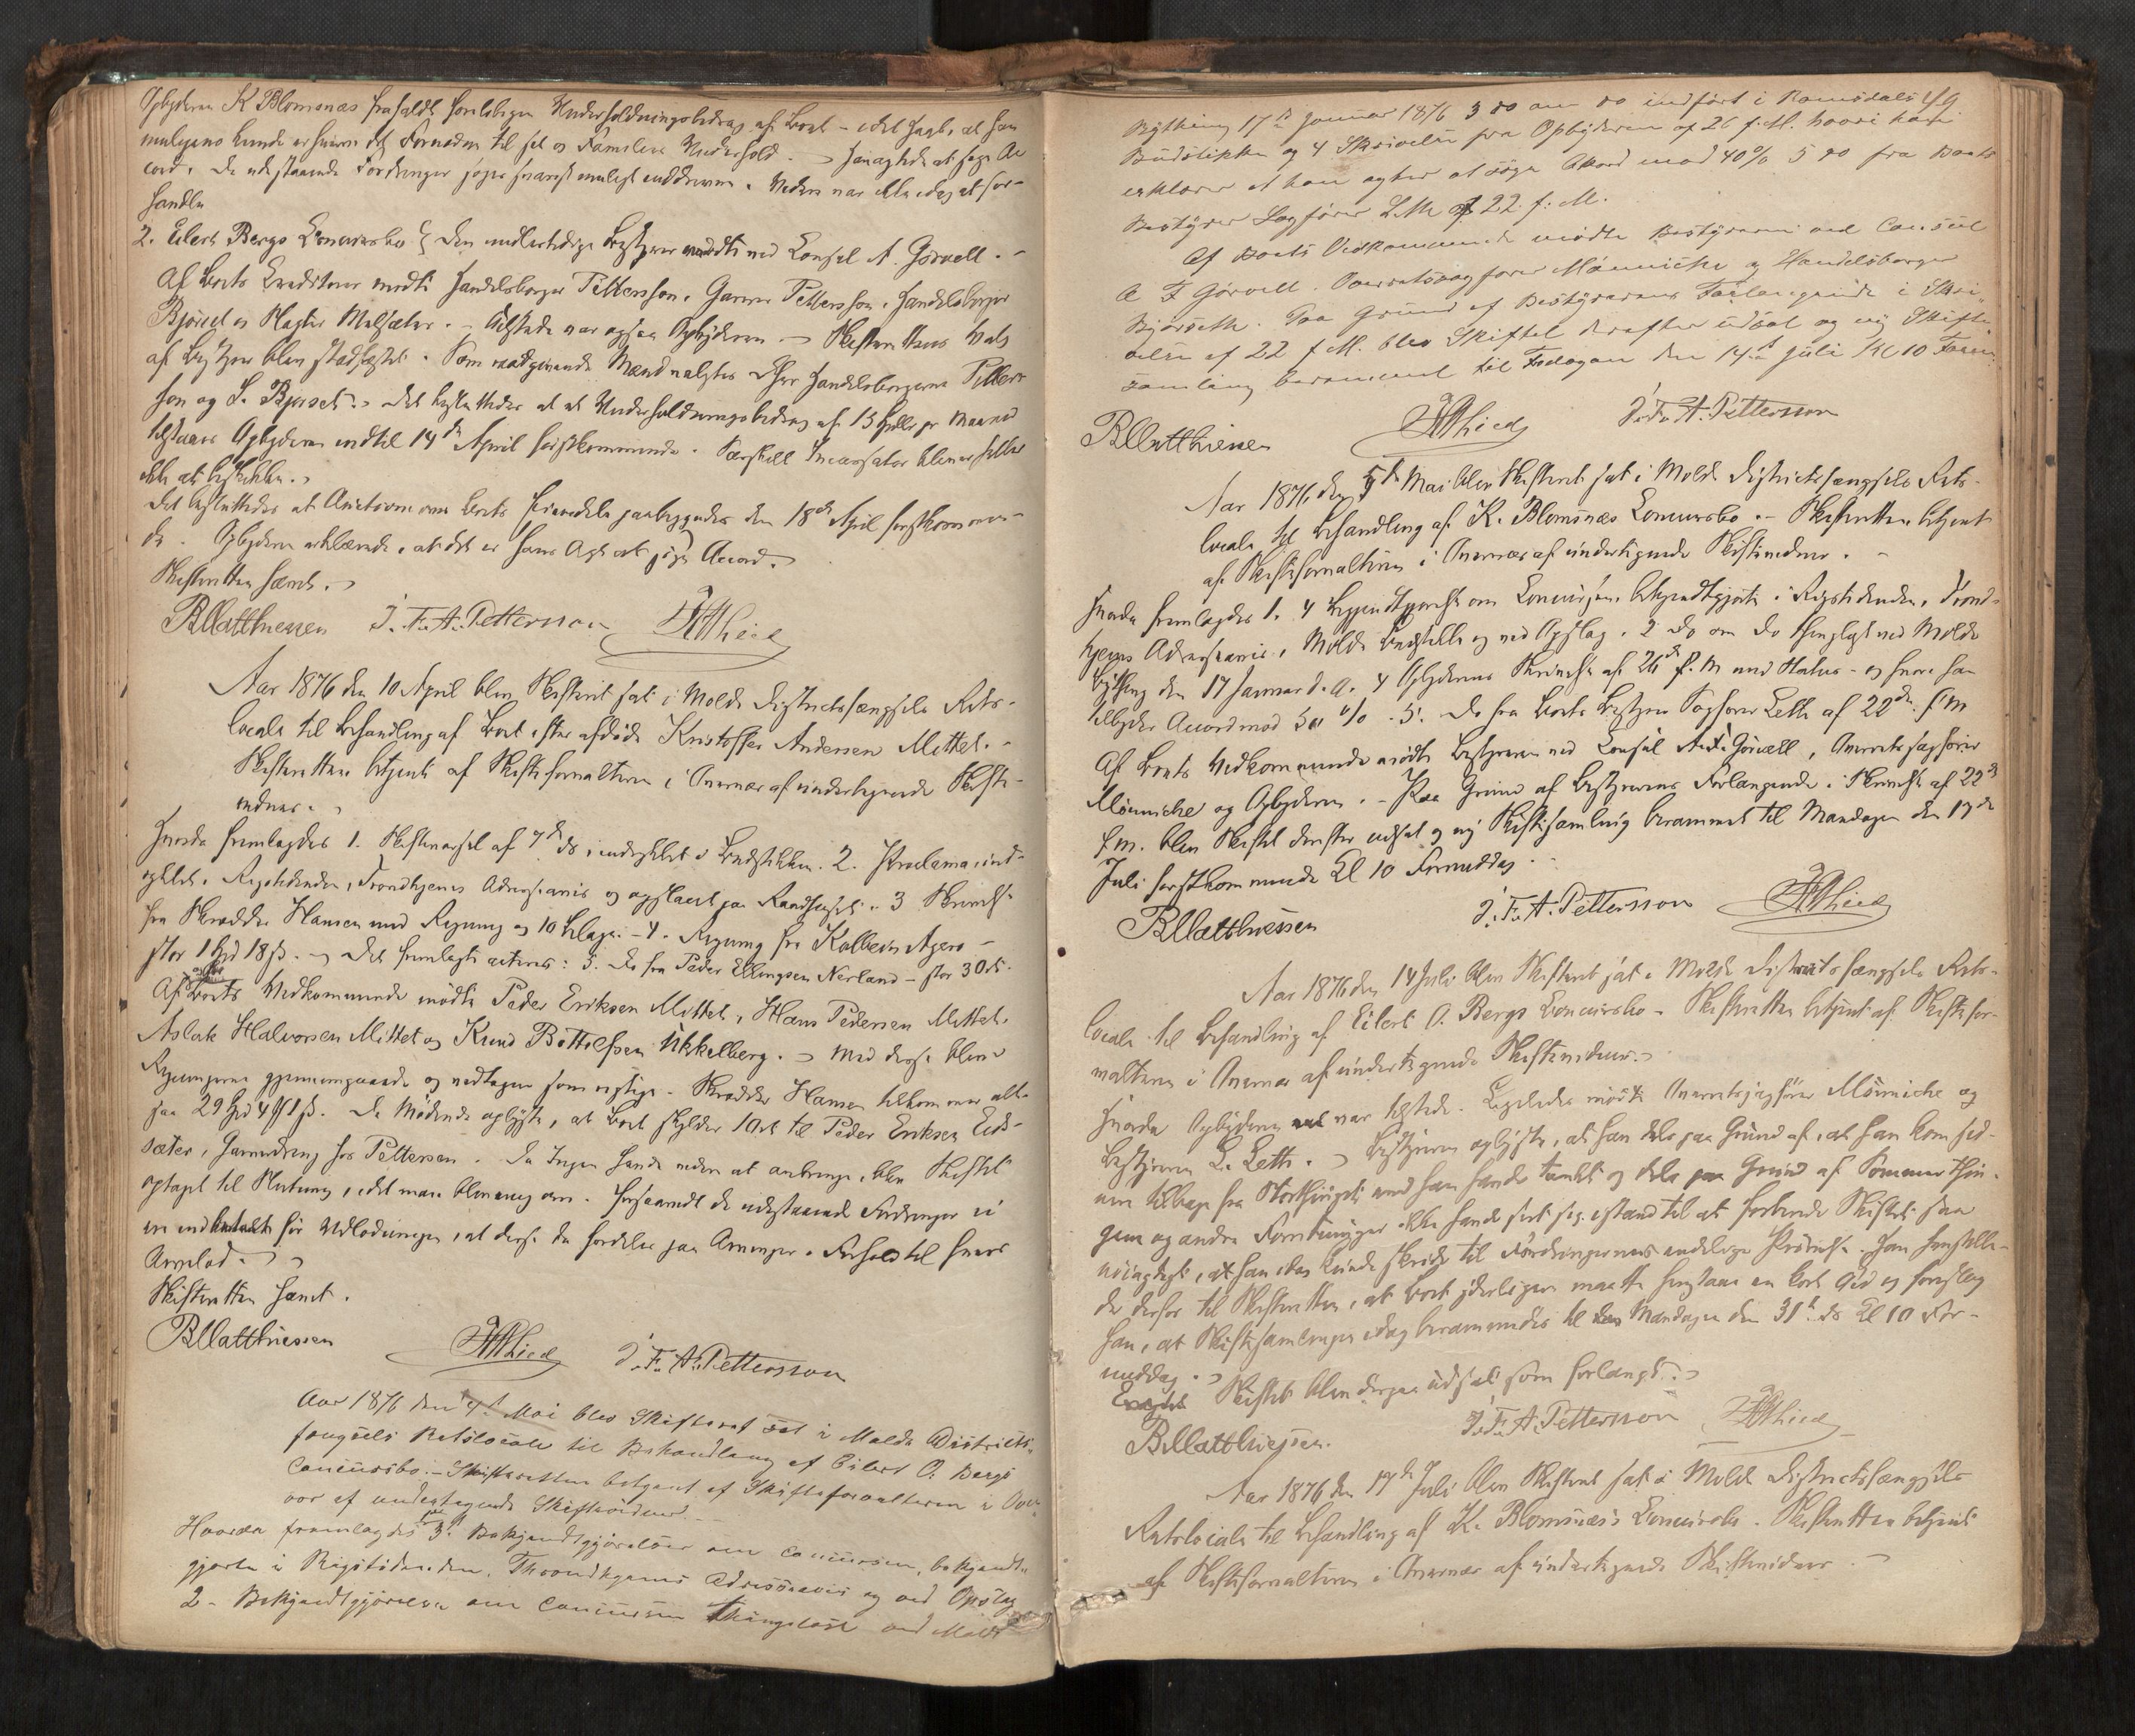 Opbyderen K Blomsnæs frafaldt foreløbigen Underholdningsbidrag af Boet – idet Sagt, at han
muligens kunde erhverve det Fornødne til sit og Familiens Underhold. – Han agtede at søge Ac
cord. De udestaaende Fordringer søges snarest muligt inddrevne. Videre var ikke idag at for-
handle
2. Eilert Bergs Concursbo. Den midlertidige Bestyrer mødte ved Consul A. Gørvell. –
Af Boets Creditorer mødte Handelsborger Pettersson, Garver Pettersson, Handelsborger
Bjørset og Slagter Malsæter. – Tilstede var ogsaa Opbyderen – Skifterettens Valg
af Bestyrer blev stadfæstet. Som raadgivende Mænd valgtes Handelsborgerne Petters
son og S. Bjørset. – Det besluttedes at et Underholdningsbidrag af 15 Spdlr pr Maaned
tilstaaes Opbyderen indtil 14de April førstkommende. Særskilt Incassator blev
ikke at beskikke.
Det besluttedes at Auctioner over Boets Eiendele paabegyndes den 18de April førstkommen-
de. Opbyderen erklærede, at det er hans Agt at søge Accord.
Skifteretten hævet.
B Matthiessen J. F. A. Pettersson
Aar 1876 den 10 April blev Skifteret sat i Molde Districtsfængsels Rets-
locale til Behandling af Boet efter afdøde Kristoffer Andersen Mittet. –
Skifteretten betjent af Skifteforvalteren i Overvær af undertegnede Skifte-
vidner.
Hvorda fremlagdes 1. Skiftevarsel af 7de ds, indrykket i Budstikken. 2. Proclama ind-
rykket i Rigstidenden, Trondhjems Adresseavis og opslaaet paa Raadhuset. 3 Skrivelse
fra Skrædder Hansen med Regning og 10 Bilage. – 4. Regning fra Kolbein Agerø –
stor 1 Spd 18 ß. – Det fremlagte acteres: 5. Do fra Peder Ellingsen Nerland – stor 30 ß.
Af Boets Vedkommende mødte Peder Eriksen Mittet, Hans Pedersen Mittet,
Aslak Halvorsen Mittet og Knud Bottolfsen Ukkelberg. – Med disse blev
Regningerne gjennemgaaede og vedtagne som rigtige. Skrædder Hansen tilkommer alt-
saa 29 Spd 4 ß. De Mødende oplyste, at Boet skylder 10 ß til Peder Eriksen Eids-
sæter, hos Pettersen. Da Ingen havde videre at anbringe, blev Skiftet
optaget til Slutning, idet man blev enig om, forsaavidt de udestaaende Fordringer ei
ere indbetalt før Udlodningen, at disse da fordeles paa Arvinger i Forhold til hvers
Arvelod.
Skifteretten hævet.
B Matthiessen J. F. A. Pettersson
Aar 1876 den 4de Mai blev Skifteret sat i Molde Districts-
fængsels Retslocale til Behandling af Eilert O. Bergs
Concursbo. – Skifteretten betjent af Skifteforvalteren i Over-
vær af undertegnede Skiftevidner. –
Hvorda fremlagdes 3 Bekjendtgjørelser om Concursen, bekjendt-
gjorte i Rigstidenden, Throndhjems Adresseavis og ved Opslag
2 – Bekjendtgjørelse om Concursen thinglæst ved Molde
Bything 17de Januar 1876 3 do om do indført i Romsdals
Budstikke og 4 Skrivelse fra Opbyderen af 26 f. M. hvori han
erklærer at han agter at søge Akord mod 40% 5 do fra Boets
Bestyrer Sagfører Leth af 22 f. M.
Af Boets Vedkommende mødte Bestyreren ved Consul
A F Gørvell. Overretssagfører Münniche og Handelsborger
Bjørseth. Paa Grund af Bestyrerens Forlangende i Skri-
velse af 22 f. M. blev Skiftet derefter udsat og ny Skifte
samling berammet til Fredagen den 14de Juli Kl 10 Form.
B Matthiessen J. F. A. Pettersson
Aar 1876 den 5te Mai blev Skifteret sat i Molde Districtsfængsels Rets-
locale til Behandling af K. Blomsnæs Concursbo. – Skifteretten betjent
af Skifteforvalteren i Overvær af undertegnede Skiftevidner. –
Hvorda fremlagdes 1. 4 Bekjendtgjørelse om Concursen, bekjendtgjorte i Rigstidenden, Trond-
hjems Adresseavis, Molde Budstikke og ved Opslag. 2 Do om Do thinglæst ved Molde
Bything den 17 Januar d. A. 4 Opbyderens Skrivelse af 26de f. M med Status – og hvori han
tilbyder Accord mod 50 % – 5. Do fra Boets Bestyrer Sagfører Leth af 22de f M
Af Boets Vedkommende mødte Bestyreren ved Consul A. F. Gørvell, Overretssagfører
Münniche og Opbyderen. – Paa Grund af Bestyrerens Forlangende i Skrivelse af 22de
f. M. blev Skiftet derefter udsat og ny Skiftesamling berammet til Mandagen den 17de
Juli førstkommende Kl 10 Formiddag.
B Matthiessen J. F. A. Pettersson
Aar 1876 den 14 Juli blev Skifteret sat i Molde Districtsfængsels Rets-
locale til Behandling af Eilert O. Bergs Concursbo – Skifteretten betjent af Skiftefor-
valteren i Overvær af undertegnede Skiftevidner.
Hvorda Opbyderen var tilstede. Ligeledes mødte Overretssagfører Münniche og
Bestyreren L. Leth. – Bestyreren oplyste, at han dels paa Grund af, at han kom sid-
ere tilbage fra Storthinget end han havde tænkt og dels paa Grund af Sommerthin-
gene og andre Forretninger ikke havde seet sig istand til at forberede Skiftet saa
nøiagtigt, at han idag kunde skride til Fordringernes endelige Prøvelse. Han henstille-
de derfor til Skifteretten, at Boet yderligere maatte henstaae en kort Tid og foreslog
han, at Skiftesamlingen idag berammedes til Mandagen den 31te ds Kl 10 For-
middag.
Skiftet blev derpaa udsat som forlangt.
B Matthiessen. J. F. A. Pettersson
Aar 1876 den 17de Juli blev Skifteret sat i Molde Districtsfængsels
Retslocale til Behandling af K. Blomsnæs's Concursbo. Skifteretten betjent
af Skifteforvalteren i Overvær af undertegnede Skiftevidner. –